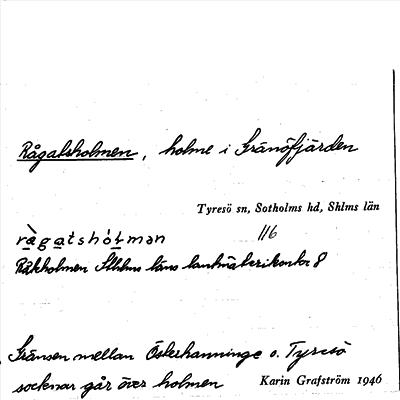 Rågatsholmen, holme i Granöfjärden
Tyresö sn, Sotholms hd, Shlms län
rågatshòlman 116
Råkholmen Sthlms läns lantmäterikontor 8
Gränsen mellan Österhanninge o. Tyresö
socknar går över holmen Karin Grafström 1946